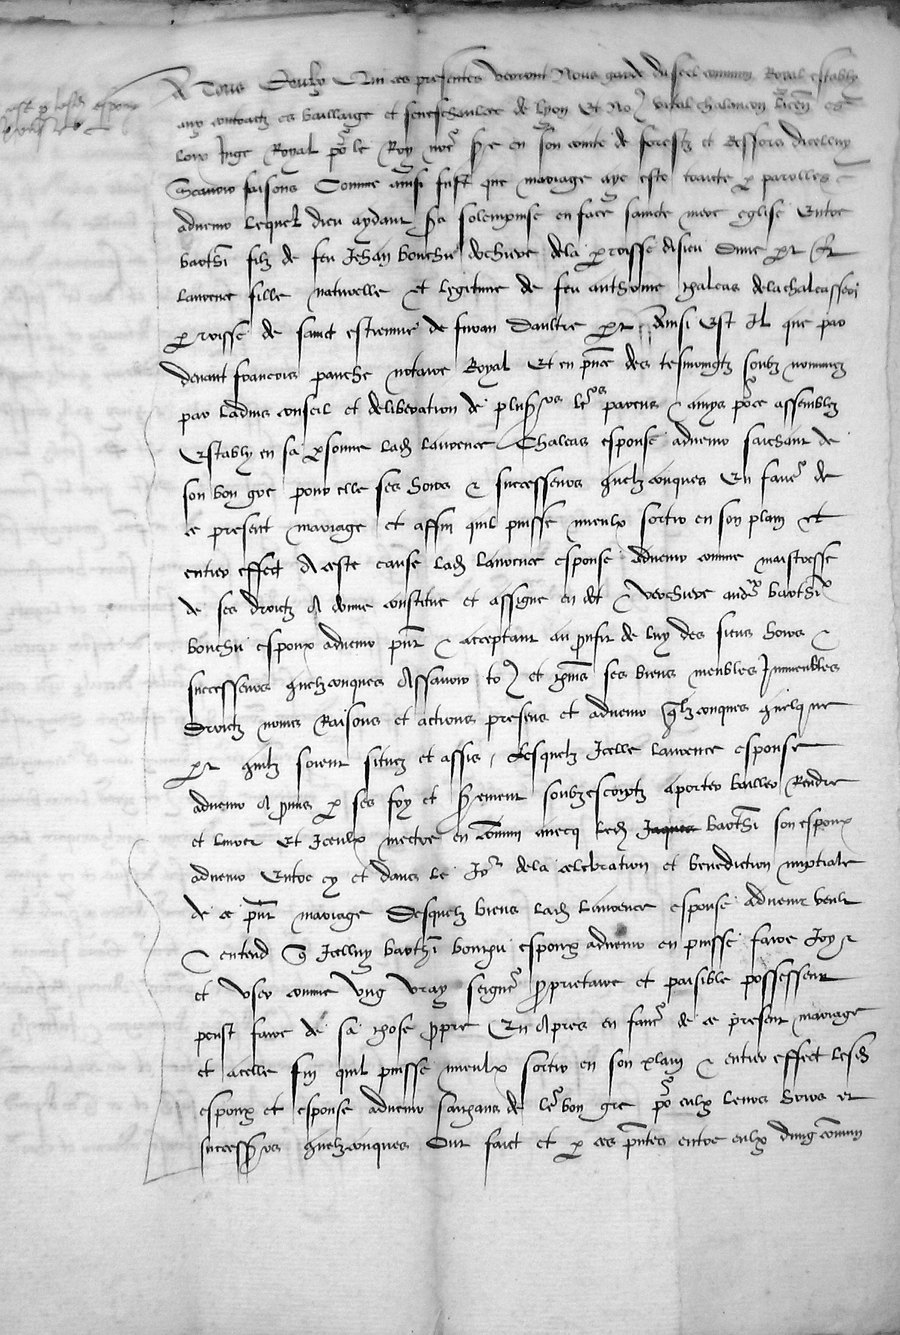 A Tous Ceulx Qui ces presentes verront Nous garde du seel commun Royal estably
aux contractz es bailliage et seneschaulcee de lyon Et No vital chalancon
Juge Royal po le Roy nre sre en son conte de forestz et Ressors dicelluy
Scavoir faisons Comme ainsi soit que mariage aye este traicte p parolles
advenir Lequel dieu aydant sera solempnise en face saincte mere eglise Entre
barthi filz de feu Jehan bouchu de la perroisse dune part Et
Laurence fille naturelle et legitime de feu anthoine chaleas de la chaleasseri
perroisse de sainct estienne de furan daultre part Ainsi Est Il que par
devant francois panche notaire Royal Et en pnce des tesmoingtz soubz nommez
par ladvis conseil et deliberation de plusrs leos parens amys pour ce assemblez
Establye en sa psonne Lad Laurence Chaleas espouse advenir saichant de
son bon gre pour elle ses hoirs et successeurs quelzconques En faver de
ce present mariage et affin quil puisse mieulx sortir en son plain et
entier effect A ceste cause lad laurence espouse advenir comme maistresse
de ses droictz A donne constitue et assigne en dot et verchiere aud barthi
bouchu espoux advenir pnt et acceptant au proffit de luy des siens hoirs et
successeurs quelzconques Assavoir to et ses biens meubles Immeubles
Droictz noms Raisons et actions presens et advenir qlzconques quelque
pt quilz soient situez et assis, Lesquelz Icelle laurence espouse
advenir A promis p ses foy et serement soubzescriptz aporter bailler Rendre
et livrer Et Iceulx mectre en commun avecq led Jaques barthi son espoux
advenir Entre cy et dans le Jor de la celebration et benediction nuptiale
de ce pnt mariage Desquelz biens Lad Laurence espouse advenir veult
et entend q Icelluy barthi bouzu espoux advenir en puisse faire Joyr
et user comme ung vray seignr proprietaire et paisible possesseur
peult faire de sa chose propre En Apres en faver de ce present mariage
et acelle fin quil puisse mieulx sortir en son plain et entier effect lesd
espoux et espouse advenir saichans de ler bon gre po eulx leurs hoirs et
successrs quelzconques Ont faict et p ces pntes entre eulx dung commun